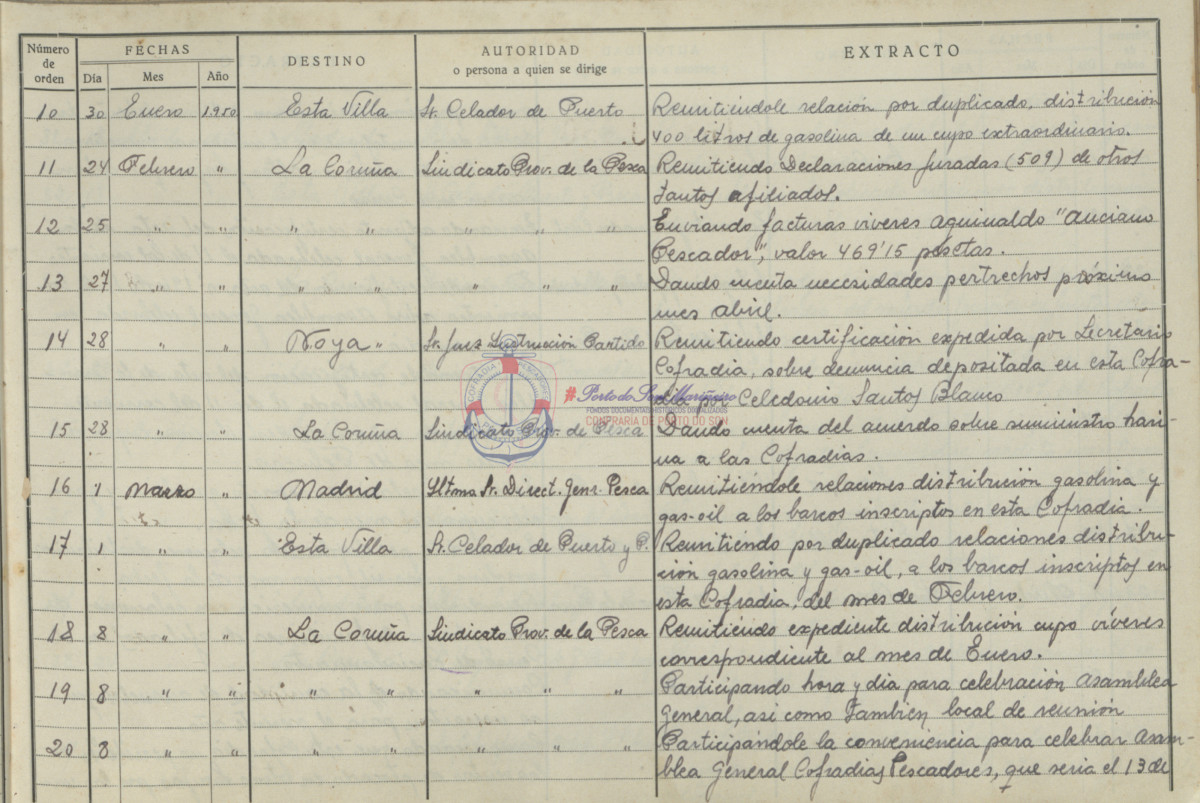 Número de orden FECHAS DESTINO AUTORIDAD o persona a quien se dirige EXTRACTO
Día Mes Año
10 30 Enero 1.950 Esta Villa Sr. Celador de Puerto Remitiéndole relación por duplicado, distribución
400 litros de gasolina de un cupo extraordinario.
11 24 Febrero " La Coruña Sindicato Prov. de la Pesca Remitiendo Declaraciones Juradas (509) de otros
tantos afiliados.
12 25 " " " " " " " Enviando facturas viveres aguinaldo "Anciano
Pescador", valor 469'15 pesetas.
13 27 " " " " " " " Dando cuenta necesidades pertrechos próximo
mes abril.
14 28 " " Noya " Sr. Juez Instrucción Partido Remitiendo certificación expedida por Secretario
Cofradia, sobre denuncia depositada en esta Cofra-
dia por Celedonio Santos Blanco
COFRADIA PESCADORES
#Porto do Son Mariñeiro
FONDOS DOCUMENTAIS HISTÓRICOS DIXITALIZADOS
CONFRARÍA DE PORTO DO SON
15 28 " " La Coruña Sindicato Prov. de Pesca Dando cuenta del acuerdo sobre suministro hari-
na a las Cofradias.
16 1 Marzo " Madrid Iltmo Sr. Direct. Genr. Pesca Remitiéndole relaciones distribución gasolina y
gas-oil a los barcos inscriptos en esta Cofradia.
17 1 " " Esta Villa Sr. Celador de Puerto y P. Remitiendo por duplicado relaciones distribu-
ción gasolina y gas-oil, a los barcos inscriptos en
esta Cofradia, del mes de Febrero.
18 8 " " La Coruña Sindicato Prov. de la Pesca Remitiendo expediente distribución cupo víveres
correspondiente al mes de Enero.
19 8 " " " " " " " Participando hora y dia para celebración asamblea
General, asi como tambien, local de reunión
20 8 " " " " " " " Participándole la conveniencia para celebrar Asam-
blea General Cofradias Pescadores, que seria el 13 de